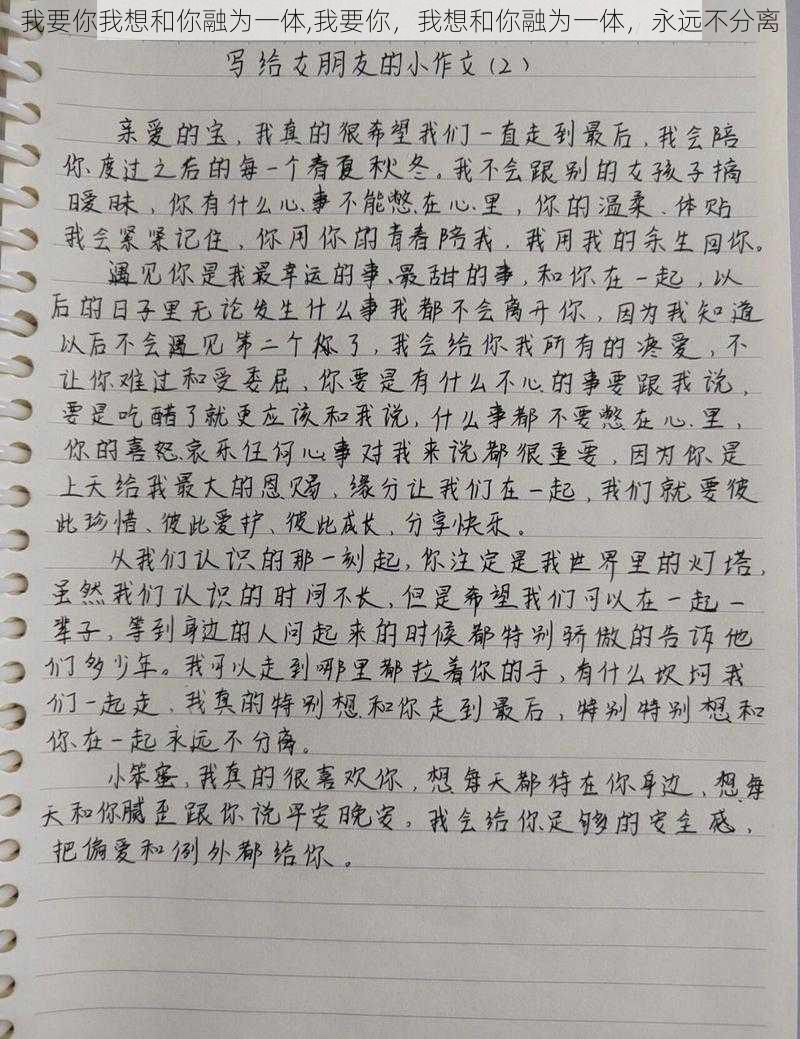 我要你我想和你融为一体,我要你，我想和你融为一体，永远不分离
写给女朋友的小作文(2)
亲爱的宝，我真的很希望我们一直走到最后，我会陪
你度过之后的每一个春夏秋冬。我不会跟别的女孩子搞
暧昧，你有什么心事不能憋在心里，你的温柔、体贴
我会紧紧记住，你用你的青春陪我，我用我的余生回你。
遇见你是我最幸运的事、最甜的事，和你在一起，以
后的日子里无论发生什么事我都不会离开你，因为我知道
以后不会遇见第二个你了，我会给你我所有的疼爱，不
让你难过和受委屈，你要是有什么不心的事要跟我说，
要是吃醋了就更应该和我说，什么事都不要憋在心里，
你的喜怒哀乐任何心事对我来说都很重要，因为你是
上天给我最大的恩赐，缘分让我们在一起，我们就要彼
此珍惜、彼此爱护、彼此成长，分享快乐。
从我们认识的那一刻起，你注定是我世界里的灯塔，
虽然我们认识的时间不长，但是希望我们可以在一起一
辈子，等到身边的人问起来的时候都特别骄傲的告诉他
们多少年。我可以走到哪里都拉着你的手，有什么坎坷我
们一起走，我真的特别想和你走到最后，特别特别想和
你在一起永远不分离。
小笨蛋，我真的很喜欢你，想每天都待在你身边，想每
天和你腻歪跟你说早安晚安。我会给你足够的安全感，
把偏爱和例外都给你。